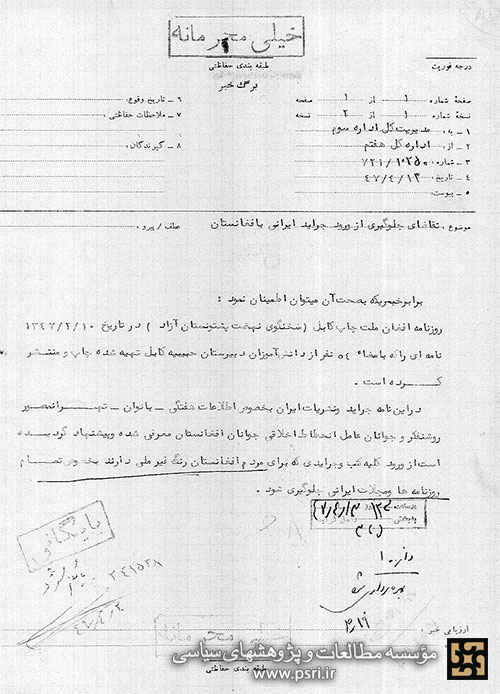 خیلی محرمانه
طبقه بندی حفاظتی
درجه فوریت
برگ خبر
صفحه شماره ۱ از ۱ صفحه
۶ ـ تاریخ وقوع:
نسخه شماره ۱ از ۲ نسخه
۷ ـ ملاحظات حفاظتی:
۱ ـ به: مدیریت کل اداره سوم
۲ ـ از: اداره کل هفتم
۸ ـ گیرندگان:
۳ ـ شماره: ۷۲۱/۱۰۲۵۰
۴ ـ تاریخ: ۴۷/۴/۱۲
۵ ـ پیوست:
موضوع: تقاضای جلوگیری از ورود جراید ایرانی بافغانستان
عطف / پیرو:
برابر خبریکه بصحت آن میتوان اطمینان نمود :
روزنامه افغان ملت چاپ کابل ( سخنگوی نهضت پشتونستان آزاد ) در تاریخ ۱۳۴۷/۲/۱۰
نامه ای را که بامضاء ۵۴ نفر از دانش آموزان دبیرستان حبیبیه کابل تهیه شده چاپ و منتشر
کرده است .
در این نامه جراید و نشریات ایران بخصوص اطلاعات هفتگی ـ بانوان ـ تهرانمصور
روشنفکر و جوانان عامل انحطاط اخلاقی جوانان افغانستان معرفی شده و پیشنهاد گردیده
است از ورود کلیه کتب و جرایدی که برای مردم افغانستان رنگ غیر ملی دارند بخصوص تمام
روزنامه ها و مجلات ایرانی جلوگیری شود .
بایگانی
۲۴۱۵۲۸
دایره ۱
بهره برداری شد
ارزیابی خبر:
خیلی محرمانه
طبقه بندی حفاظتی
مؤسسه مطالعات و پژوهشهای سیاسی
www.psri.ir